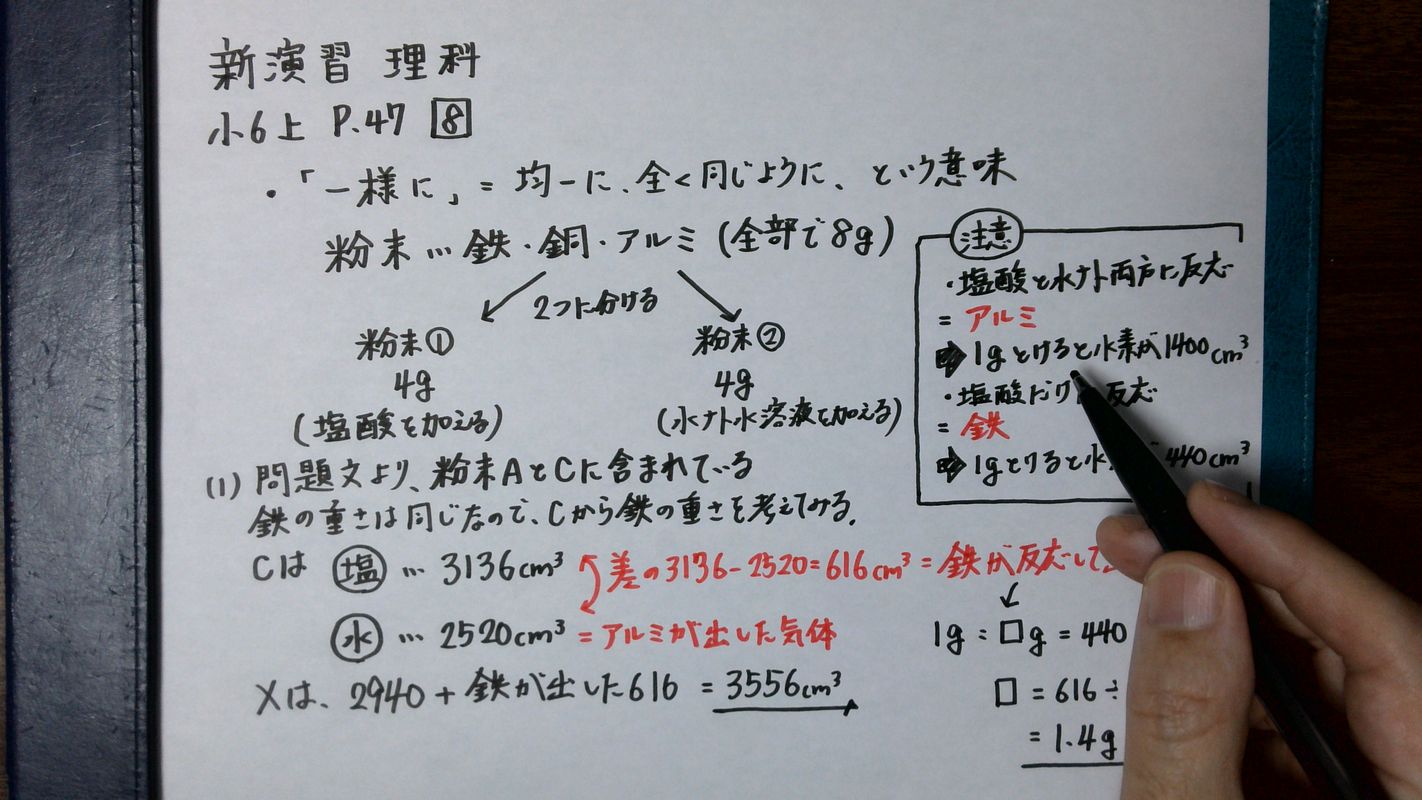 新演習 理科
小6上 P.47 8
・「一様に」= 均一に、全く同じように、という意味
粉末…鉄・銅・アルミ(全部で8g)
2つに分ける
粉末①
4g
(塩酸を加える)
粉末②
4g
(水ナト水溶液を加える)
注意
・塩酸と水ナト両方に反応
= アルミ
➡1gとけると水素が1400cm³
・塩酸だけ 反応
= 鉄
➡1gとけると水 440cm³
(1) 問題文より、粉末AとCに含まれている
鉄の重さは同じなので、Cから鉄の重さを考えてみる。
Cは 塩 … 3136cm³ 差の3136-2520=616cm³ = 鉄が反応して
水 … 2520cm³ = アルミが出した気体
1g:□g = 440
□ = 616÷
= 1.4g
Xは、2940 + 鉄が出した616 = 3556cm³